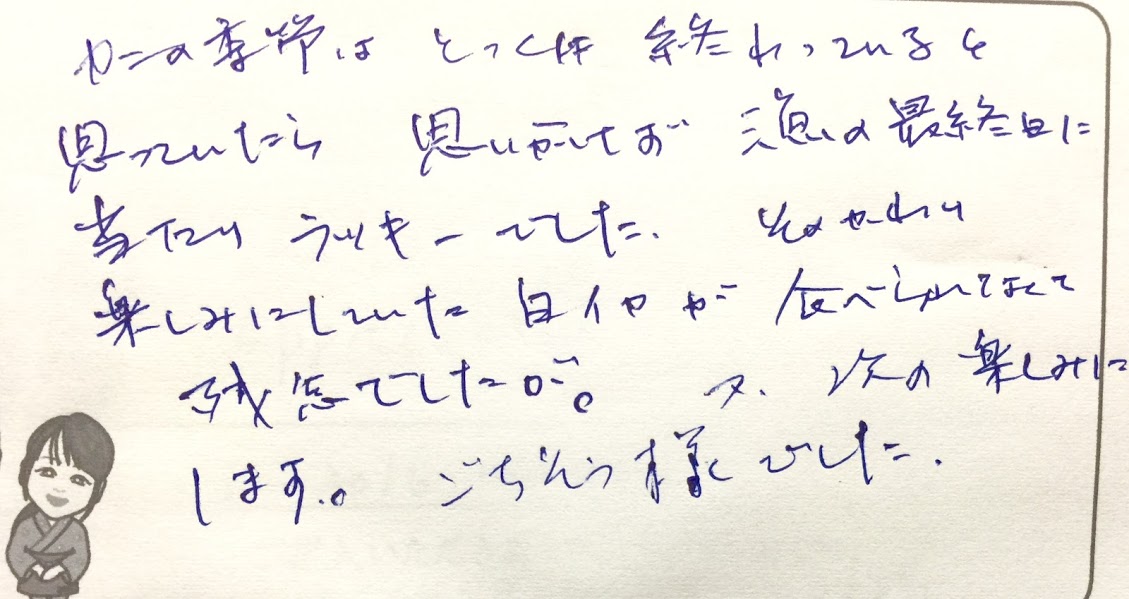 カニの季節は とっくに 終わっていると
思っていたら 思いがけず 漁の最終日に
当たり ラッキーでした. そのかわり
楽しみにしていた 白イカが 食べられなくて
残念でしたが。 又、次の楽しみに
します。 ごちそう様でした.